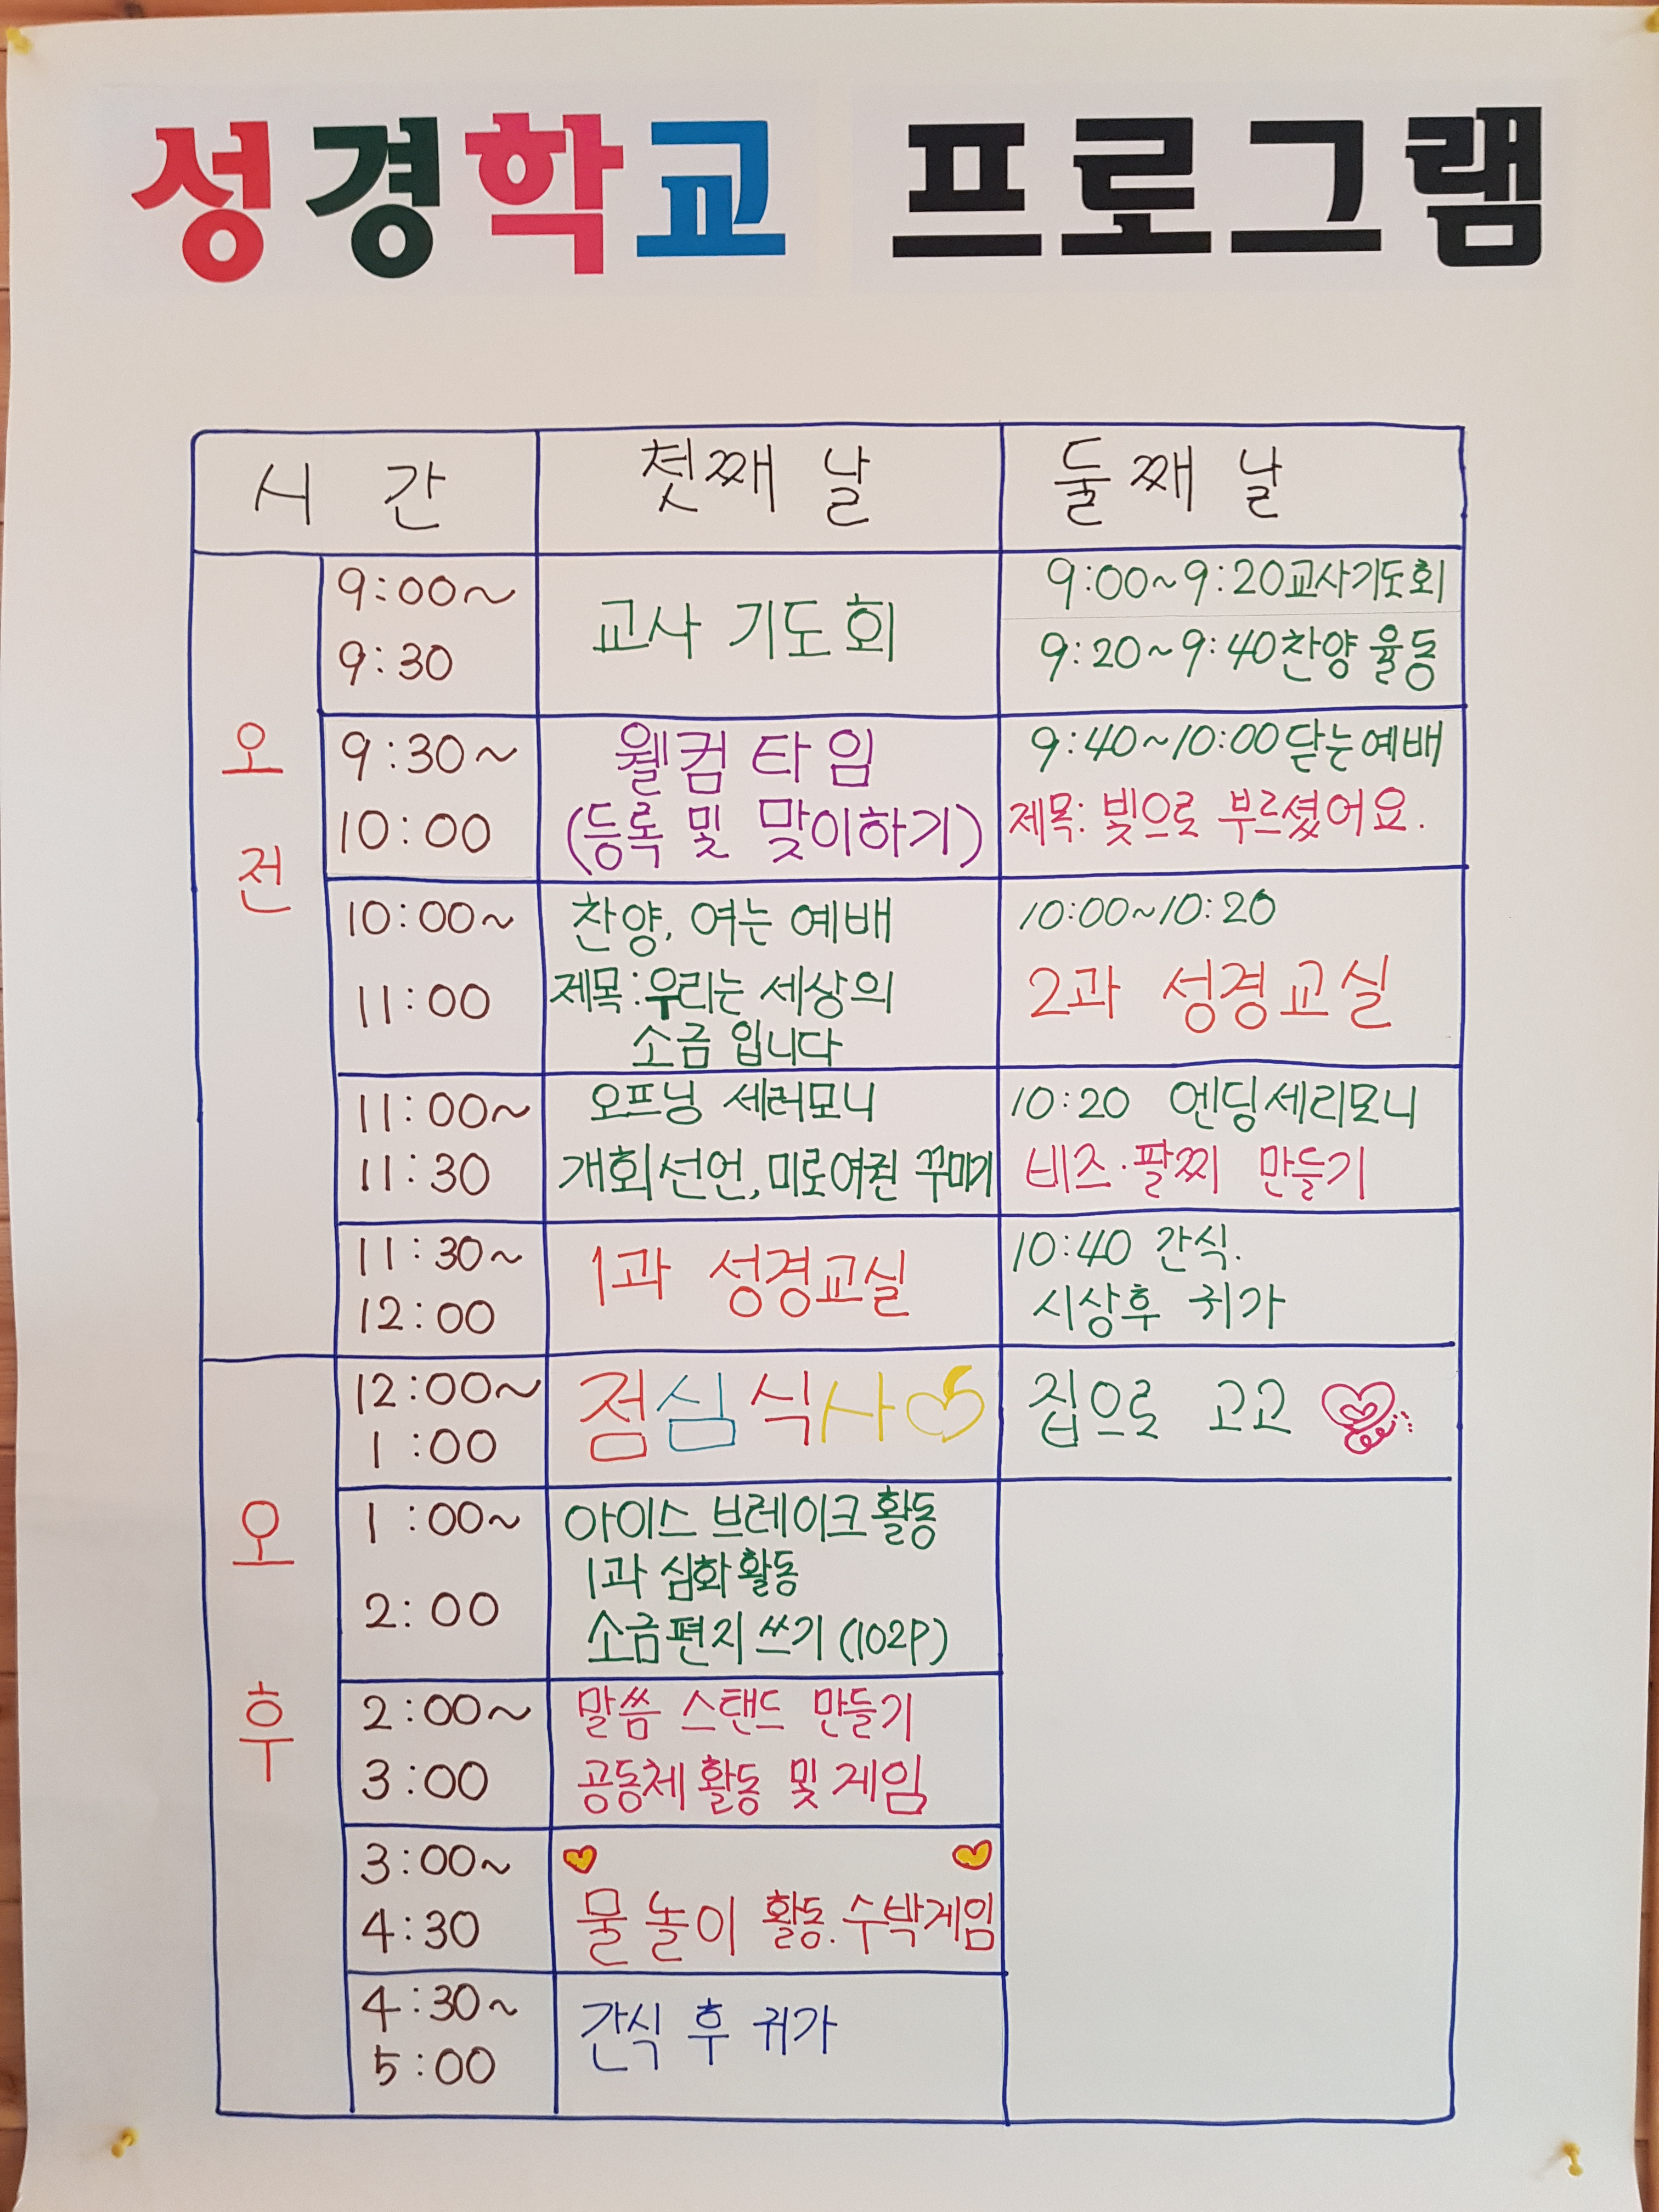 성경학교 프로그램
시 간
첫째 날
둘째 날
오 전
9:00~
9:30
교사 기도회
9:00~9:20 교사기도회
9:20~9:40 찬양 율동
9:30~
10:00
웰컴 타임
(등록 및 맞이하기)
9:40~10:00 닫는예배
제목: 빛으로 부르셨어요.
10:00~
11:00
찬양, 여는 예배
제목: 우리는 세상의
소금 입니다
10:00~10:20
2과 성경교실
11:00~
11:30
오프닝 세러모니
개회선언, 미로여권 꾸미기
10:20 엔딩세리모니
비즈·팔찌 만들기
11:30~
12:00
1과 성경교실
10:40 간식.
시상후 귀가
오 후
12:00~
1:00
점심식사
집으로 고고
1:00~
2:00
아이스 브레이크 활동
1과 심화활동
소금편지 쓰기 (102P)
2:00~
3:00
말씀 스탠드 만들기
공동체 활동 및 게임
3:00~
4:30
물 놀이 활동. 수박게임
4:30~
5:00
간식 후 귀가